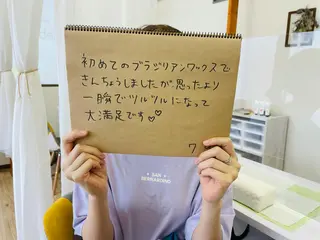 初めてのブラジリアンワックスで
きんちょうしましたが思ったより
一瞬でツルツルになって
大満足です♡♡
7
SAN